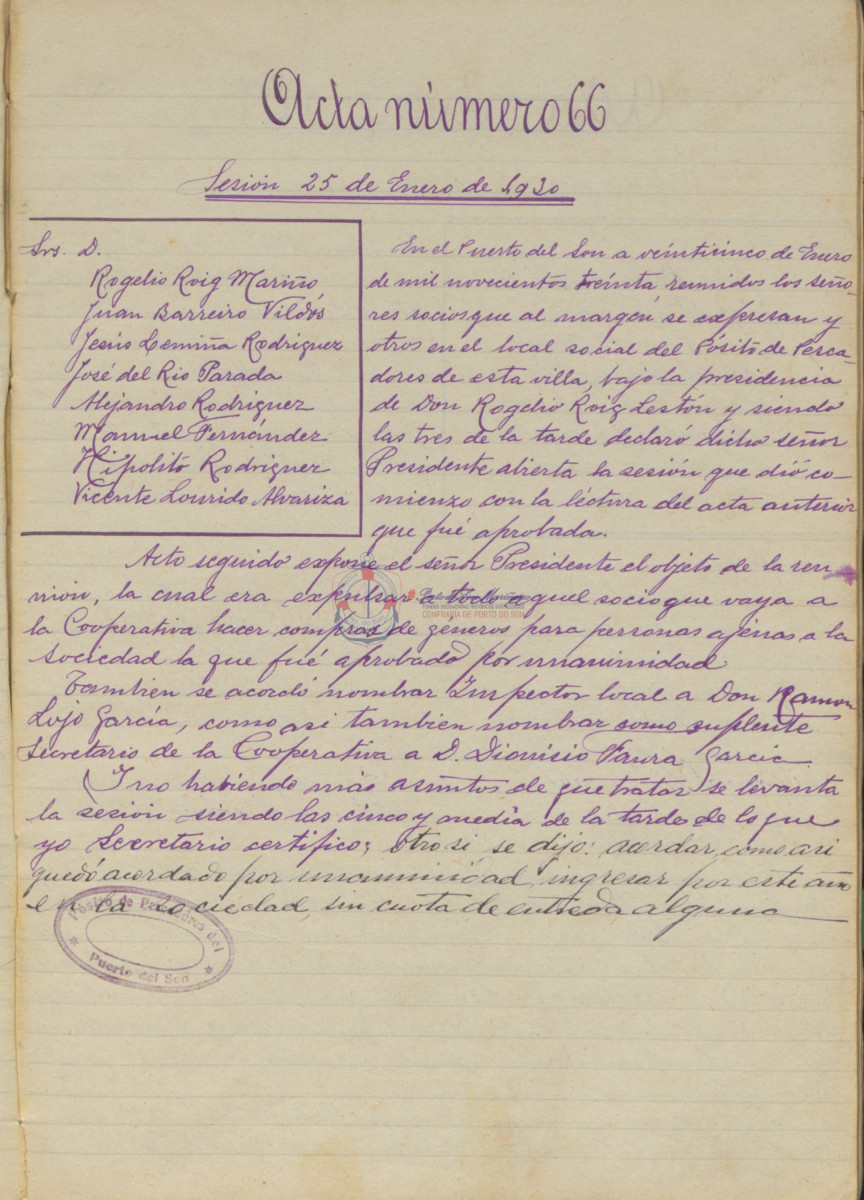 Acta número 66
Sesión 25 de Enero de 1930
Srs. D.
Rogelio Roig Mariño
Juan Barreiro Vildós
Jesús Lemiña Rodriguez
José del Rio Parada
Alejandro Rodriguez
Manuel Fernández
Hipolito Rodriguez
Vicente Lourido Alvariza
En el Puerto del Son a veinticinco de Enero
de mil novecientos treinta, reunidos los seño-
res socios que al margen se expresan y
otros en el local social del Pósito de Pesca-
dores de esta villa, bajo la presidencia
de Don Rogelio Roig Lestón y siendo
las tres de la tarde declaró dicho señor
Presidente abierta la sesión que dió co-
mienzo con la lectura del acta anterior
que fué aprobada.
Acto seguido expone el señor Presidente el objeto de la reu-
nión, la cual era expulsar a todo aquel socio que vaya a
la Cooperativa hacer compras de géneros para personas ajenas a la
sociedad la que fué aprobado por unanimidad
Tambien se acordó nombrar Inspector local a Don Ramon
Lojo García, como asi tambien nombrar como suplente
Secretario de la Cooperativa a D. Dionisio Faura Garcia
Y no habiendo más asuntos de que tratar se levanta
la sesión siendo las cinco y media de la tarde de lo que
yo Secretario certifico; otro si se dijo: acordar, como asi
quedó acordado por unanimidad, ingresar por este año
en la sociedad, sin cuota de entrada alguna
FONDOS DOCUMENTAIS HISTÓRICOS DIXITALIZADOS
CONFRARÍA DE PORTO DO SON
Pósito de Pescadores del
Puerto del Son